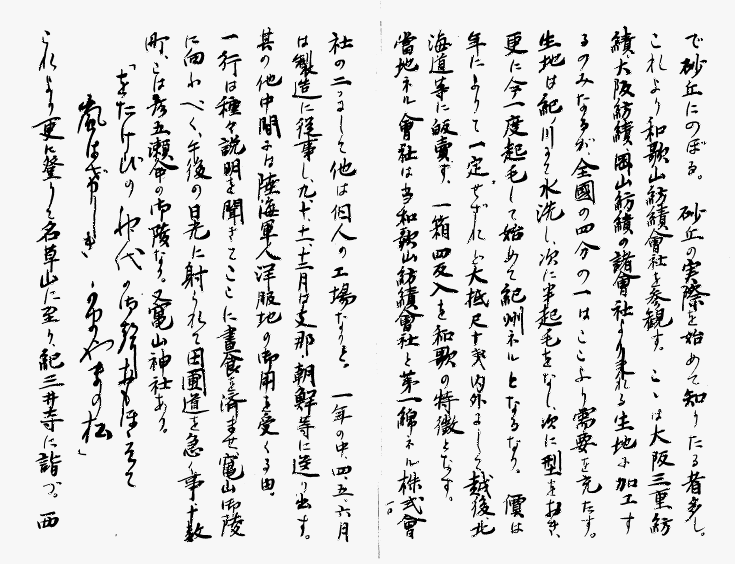 で砂丘にのぼる。砂丘の実際を始めて知りたる者多し。
これより和歌山紡績會社を参観す。ここは大阪三重紡
績、大阪紡績、岡山紡績の諸會社より来れる生地に加工す
るのみなるが全國の四分の一はここより需要を充たす。
生地は紀ノ川にて水洗し、次に半起毛をなし、次に型をおき、
更に今一度起毛して始めて紀州ネルとなるなり。價は
年によりて一定せざれども大抵尺十 内外にして越後北
海道等に販賣す。一箱四反入を和歌の特徴となす。
當地ネル會社は当和歌山紡績會社と第一綿ネル株式會
社の二つにして他は個人の工場なりと。一年の中、四、五、六月
は製造に従事し、九、十、十一、十二月は支那朝鮮等に送り出す。
其の他中間には陸海軍人洋服地の御用を受くる由。
一行は種々説明を聞きてここに晝食を済ませ竈山御陵
に向わべく、午後の日光に射られて田圃道を急ぐ事十数
町、こは彦五瀬命の御陵なり。又竈山神社あり。
「をたけびの神代の御聲おもほえて
嵐はげしき かまやまの松」
これより更に登りて名草山に至り、紀三井寺に詣づ。西